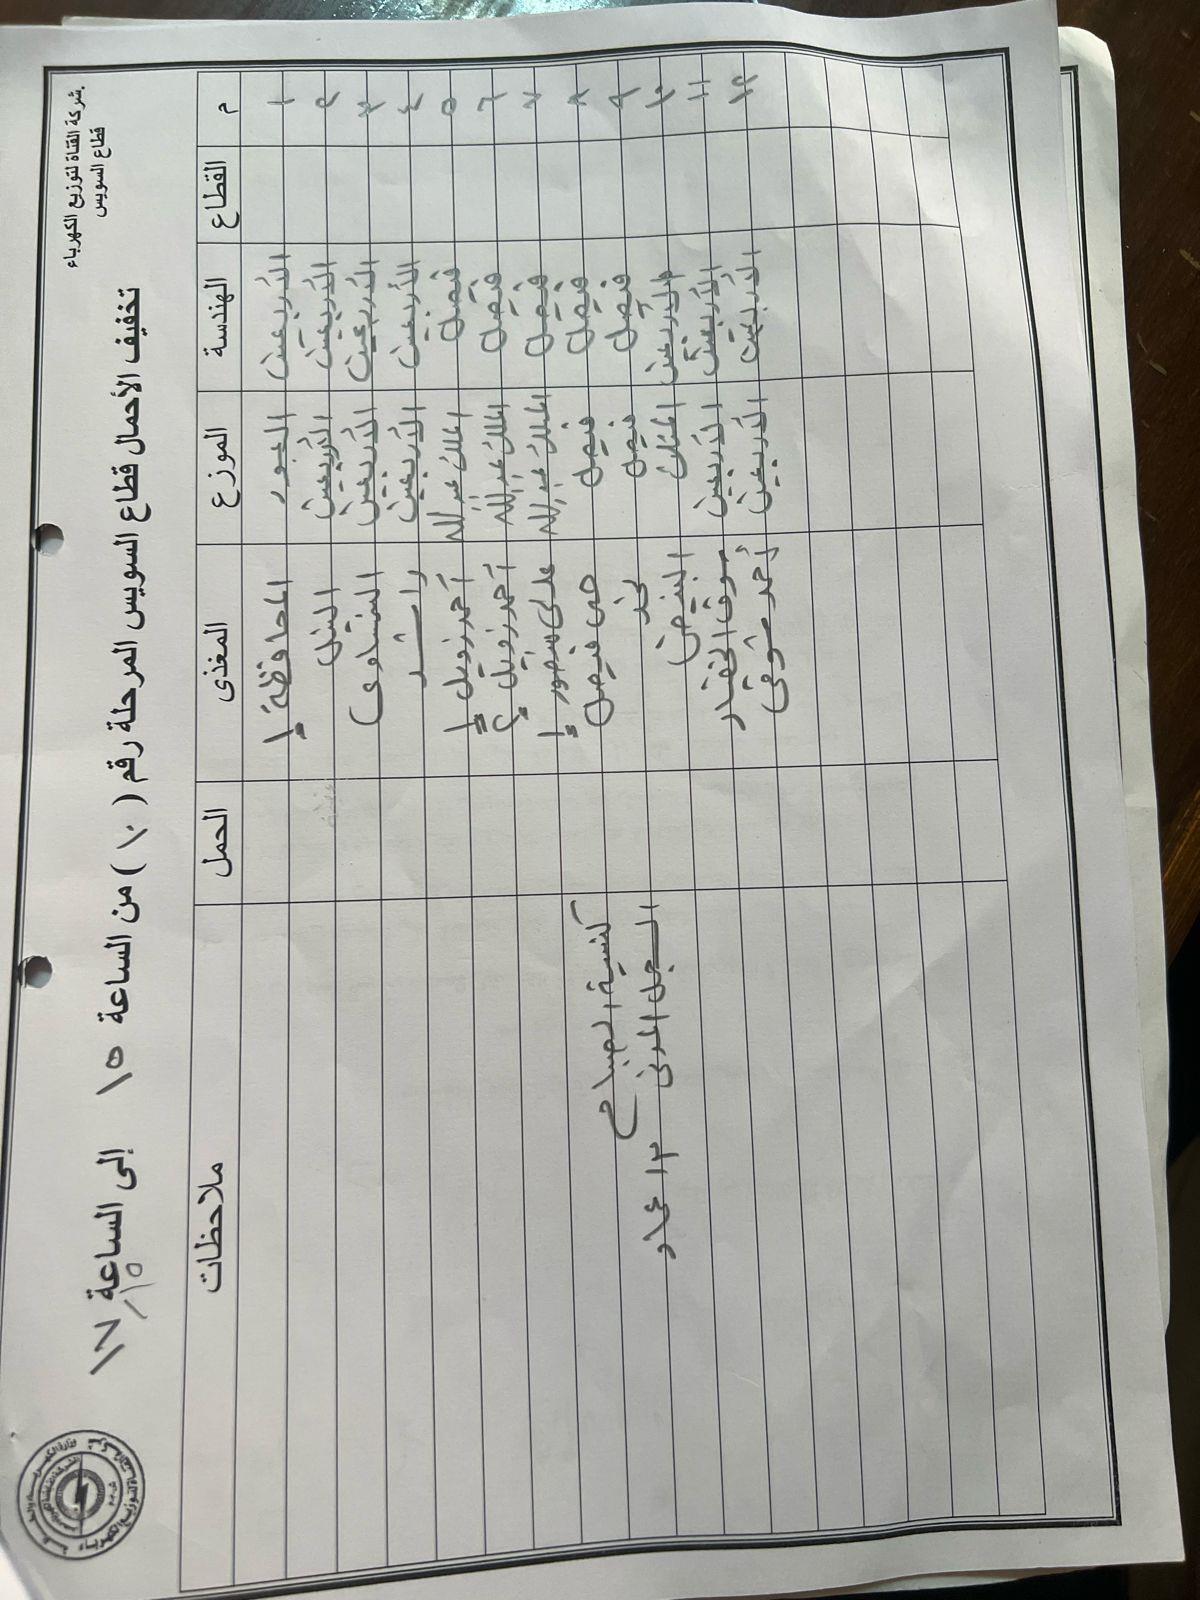 شركة القناة لتوزيع الكهرباء
قطاع السويس
تخفيف الأحمال قطاع السويس المرحلة رقم ( ١٠ ) من الساعة ١٥ إلى الساعة ١٧
١٥
م القطاع الهندسة الموزع المغذى الحمل ملاحظات
١ الأربعين العبور المحافظة ١
٢ الأربعين الأربعين النيل
٣ الأربعين الأربعين
٤ الأربعين الأربعين راشد
٥ فيصل الملك عبدالله أحمد زويل ١
٦ فيصل الملك عبدالله أحمد زويل ٢
٧ فيصل الملك عبدالله على منصور ١
٨ فيصل فيصل حى فيصل كنيسة الصباح
٩ فيصل فيصل السجل المدنى ١٣ عمار
١٠ الأربعين المثلث
١١ الأربعين الأربعين سوق الخضار
١٢ الأربعين الأربعين أحمد شوقى